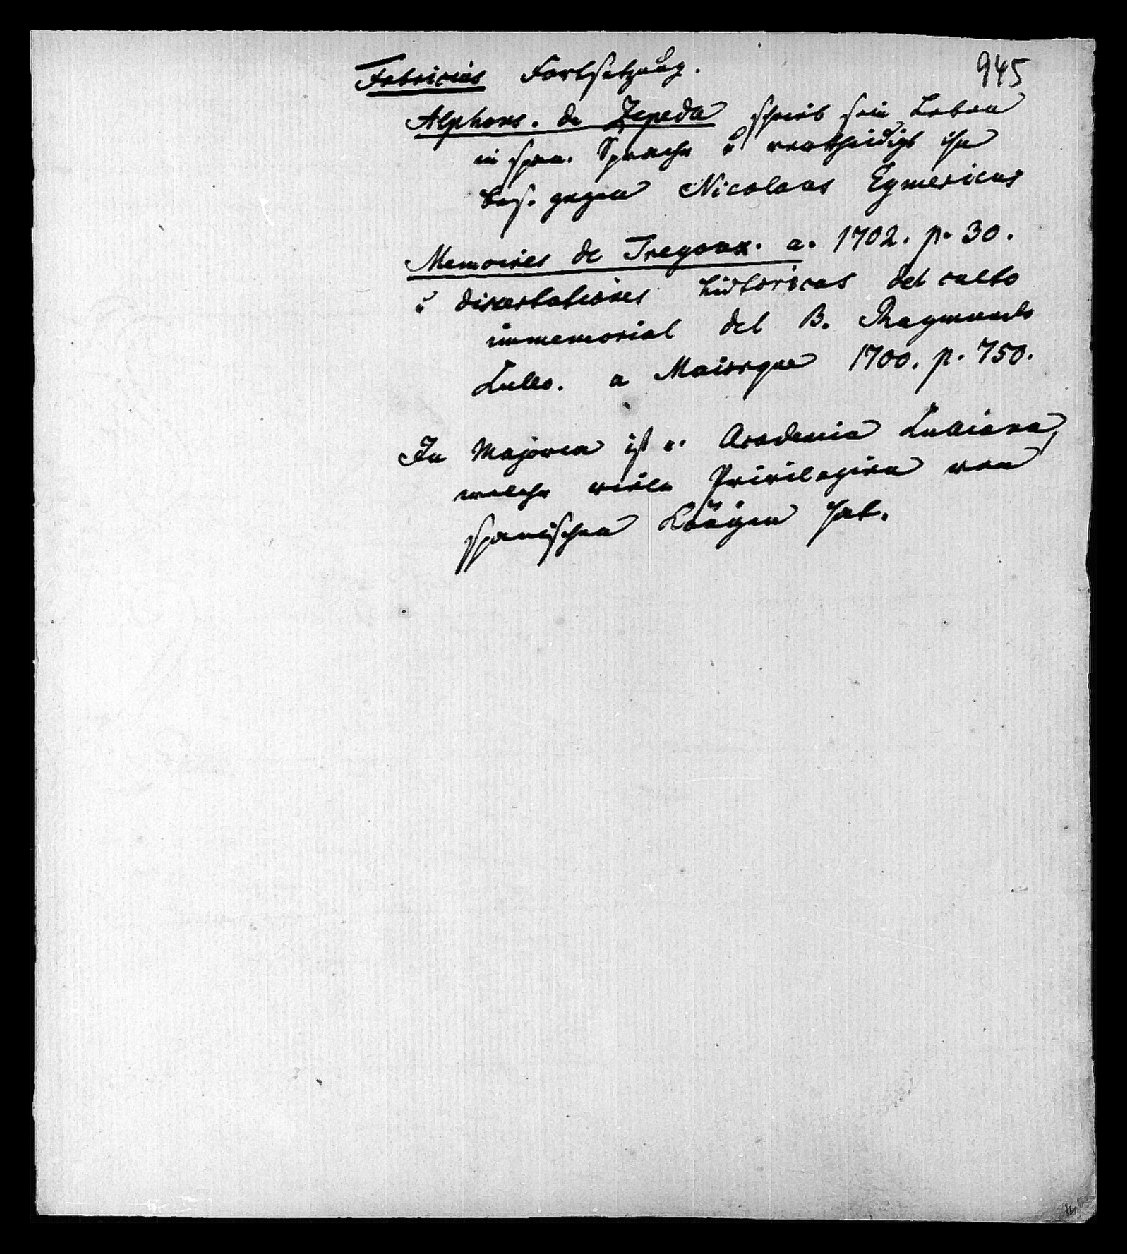 945
Fabricius Fortsetzung.
Alphons. de Zepeda schrieb sein Leben
in span. Sprache u vertheidigt ihn
bes. gegen Nicolaus Eymericus
Memoires de Trevoux. a. 1702. p. 30.
u disertationes historicas del culto
immemorial del B. Raymundo
Lullo. a Maiorque 1700. p. 750.
In Majorca ist e. Academia Lulliana,
welche viele Privilegien von
spanischen Königen hat.